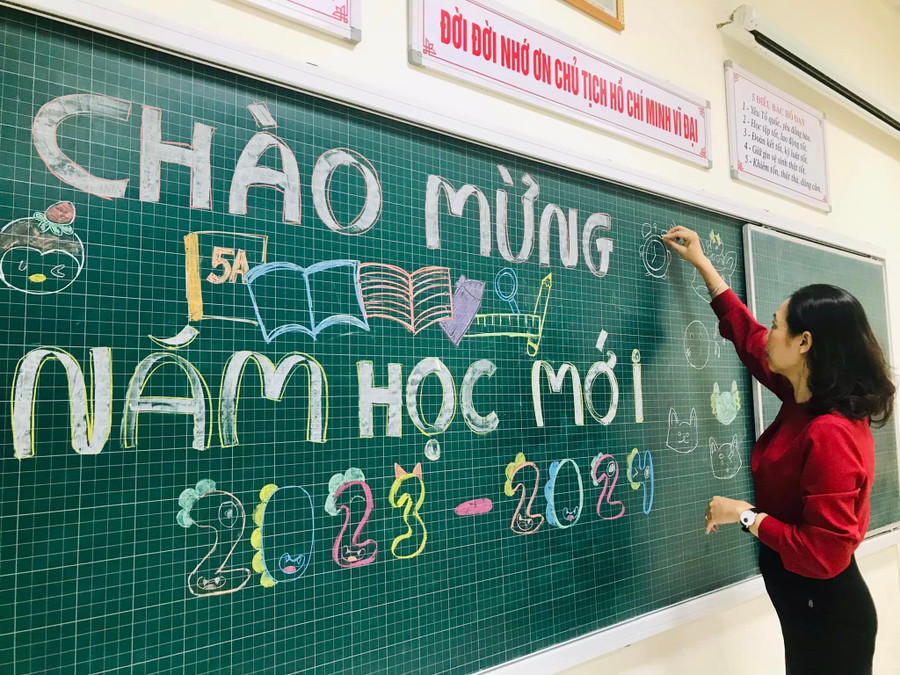 ĐỜI ĐỜI NHỚ ƠN CHỦ TỊCH HỒ CHÍ MINH VĨ ĐẠI
5 ĐIỀU BÁC HỒ DẠY
1 - Yêu Tổ quốc, yêu đồng bào.
2 - Học tập tốt, lao động tốt.
3 - Đoàn kết tốt, kỷ luật tốt.
4 - Giữ gìn vệ sinh thật tốt.
5 - Khiêm tốn, thật thà, dũng cảm.
CHÀO MỪNG
5A
NĂM HỌC MỚI
2023 - 2024